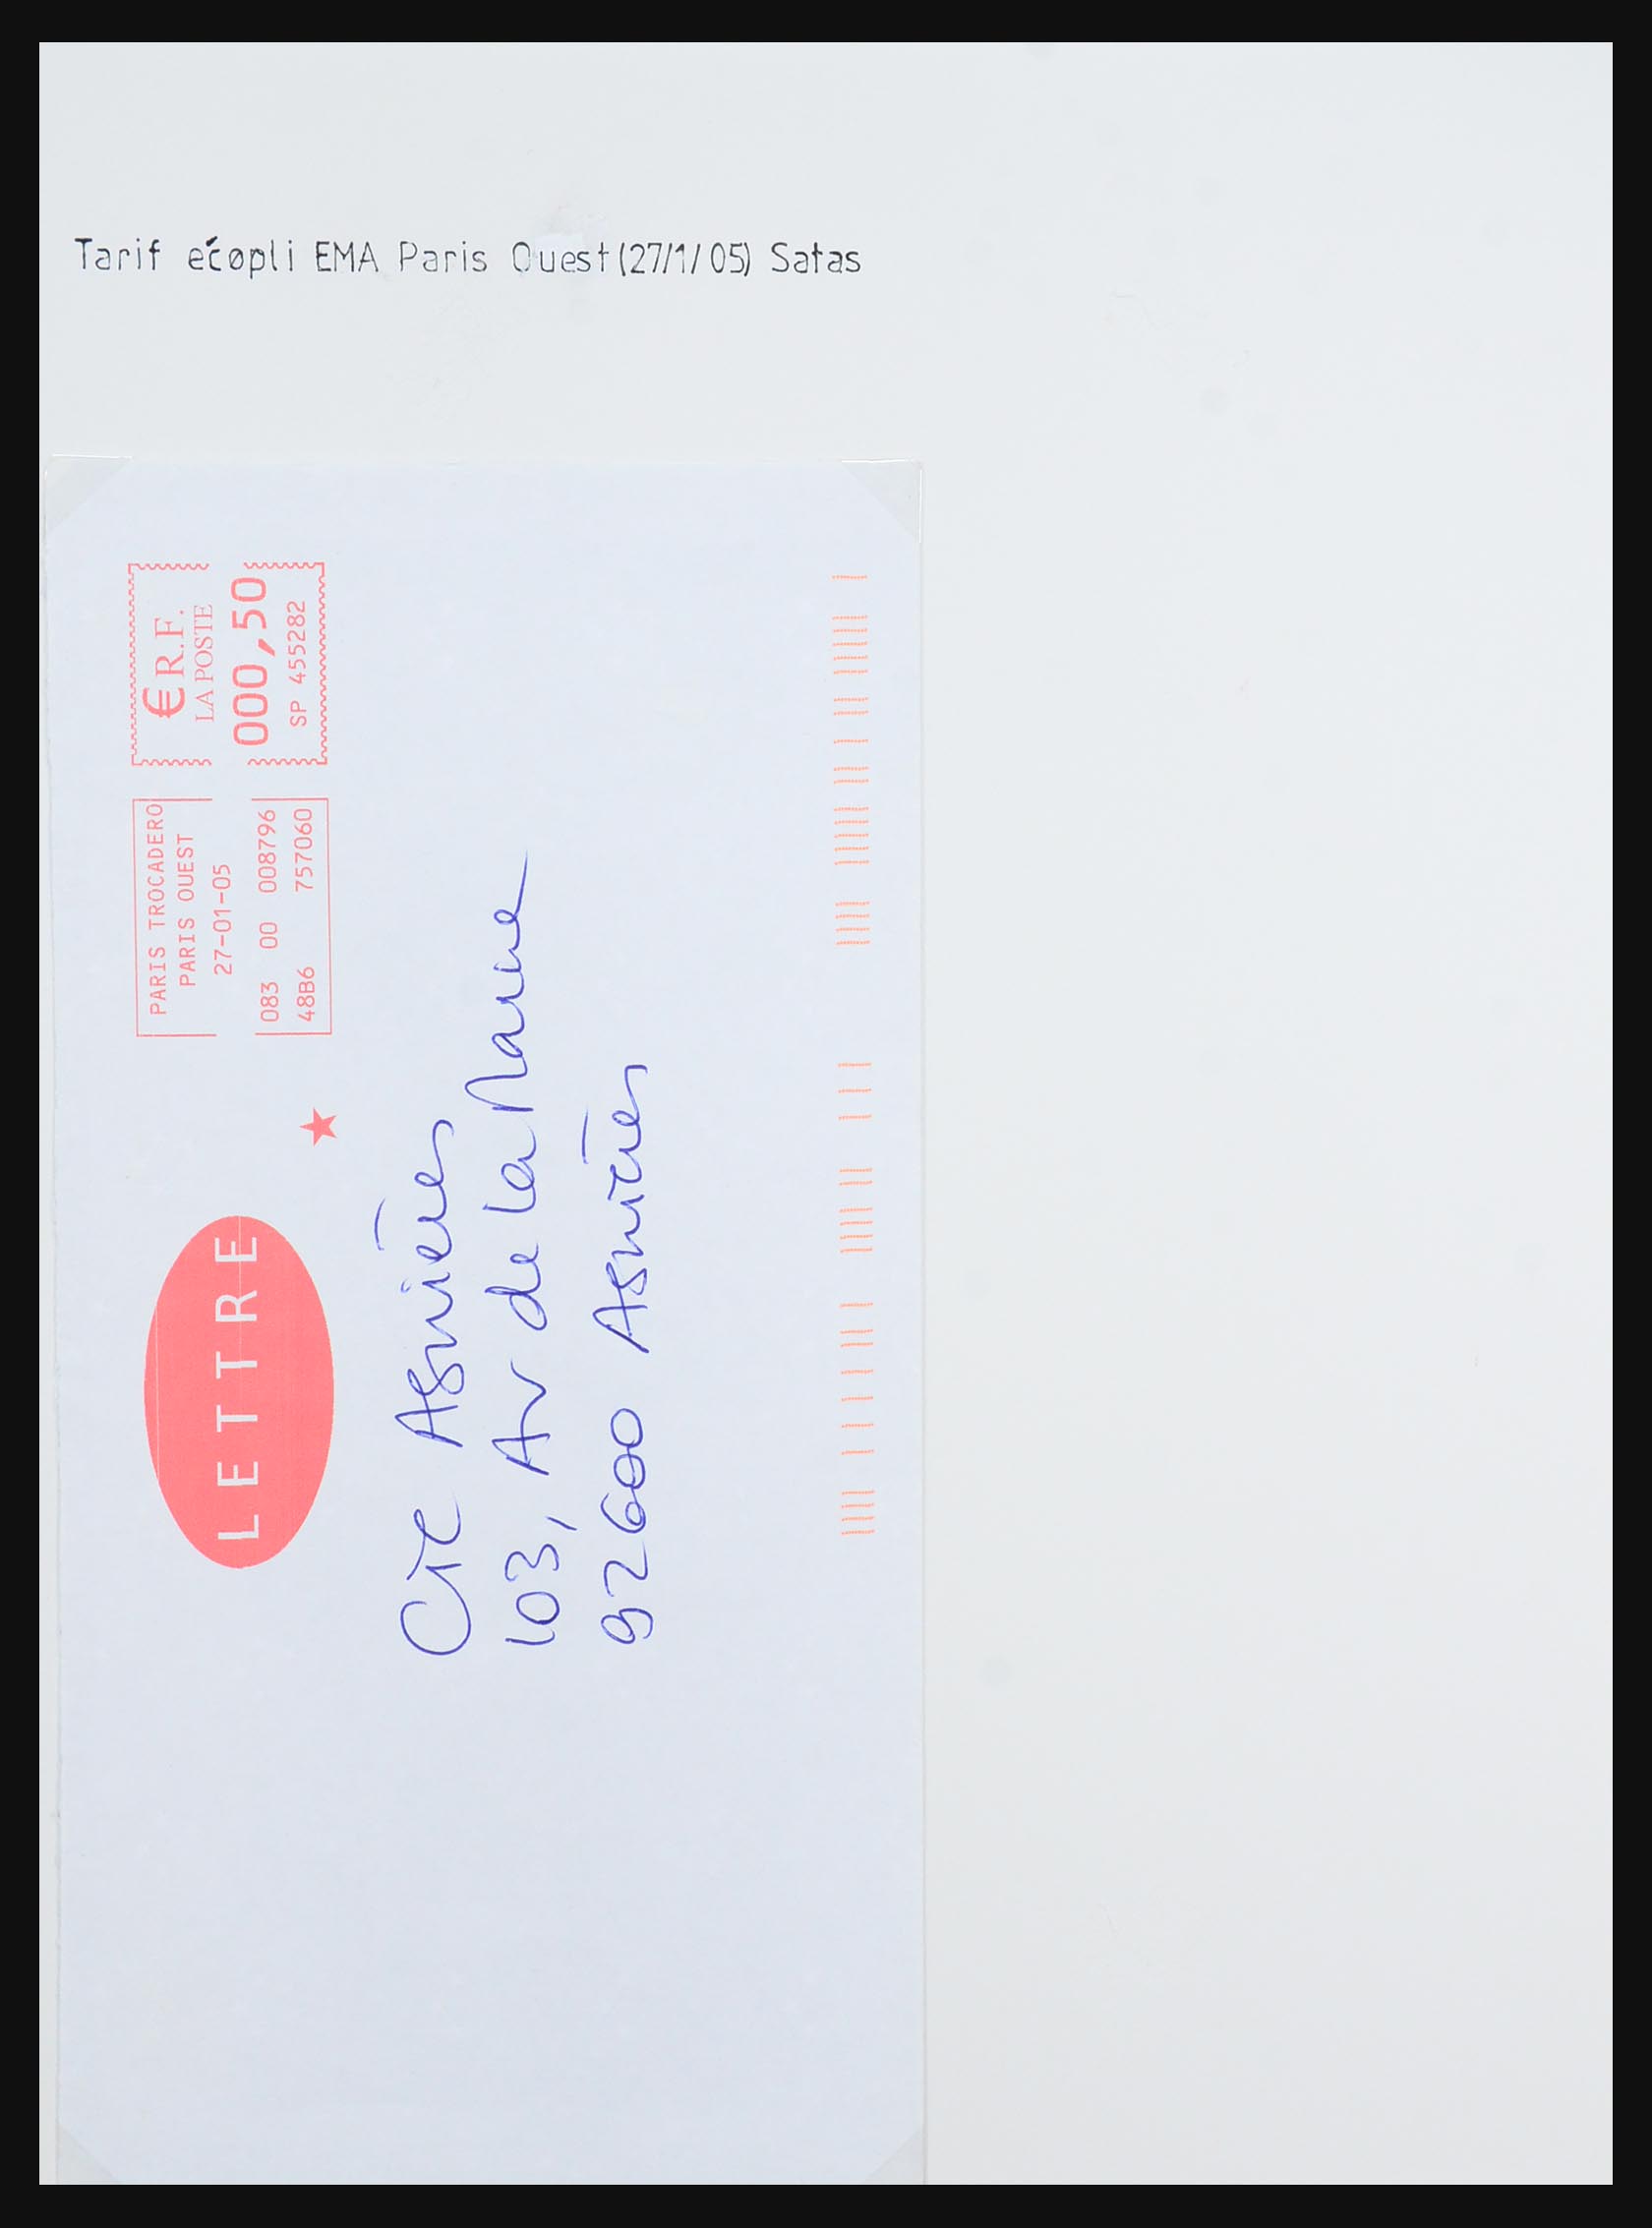 Tarif écopli EMA Paris Ouest (27/1/05) Satas
LETTRE
PARIS TROCADERO
PARIS OUEST
27-01-05
083 00 008796
48B6 757060
€ R.F.
LA POSTE
000,50
SP 455282
CIC Asnières
103, Av de la Marne
92600 Asnières